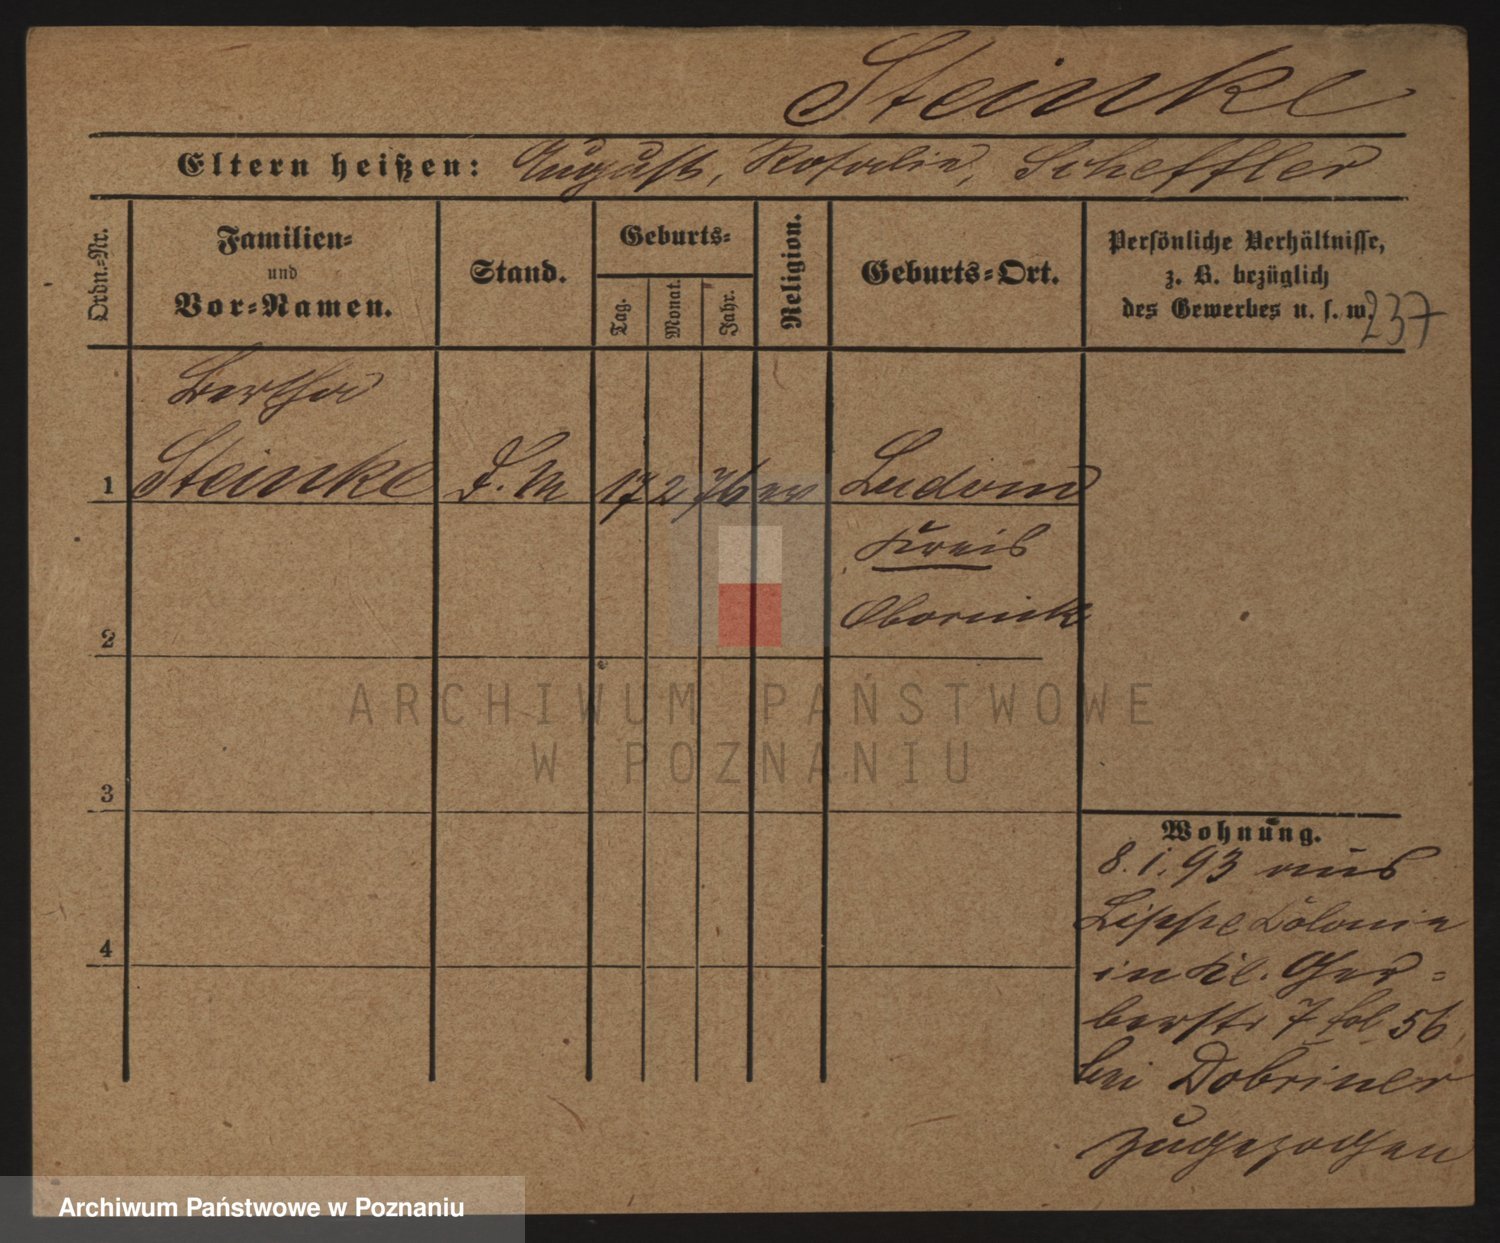 Steinke
Eltern heißen: August, Rosalie, Scheffler
Ordn.-Nr.
Familien-
und
Vor-Namen.
Stand.
Geburts-
Tag.
Monat.
Jahr.
Religion.
Geburts-Ort.
Persönliche Verhältnisse,
z. B. bezüglich
des Gewerbes u. s. w.
237
Bertha
1 Steinke D. M 17 2 76 ev Ludom
Kreis
Obornik
2
3
4
Wohnung.
8.1.93 aus
Lippe Kolonie
in Kl. Ger-
berstr 7 fol 56
bei Dobriner
zugezogen
ARCHIWUM PAŃSTWOWE
W POZNANIU
Archiwum Państwowe w Poznaniu